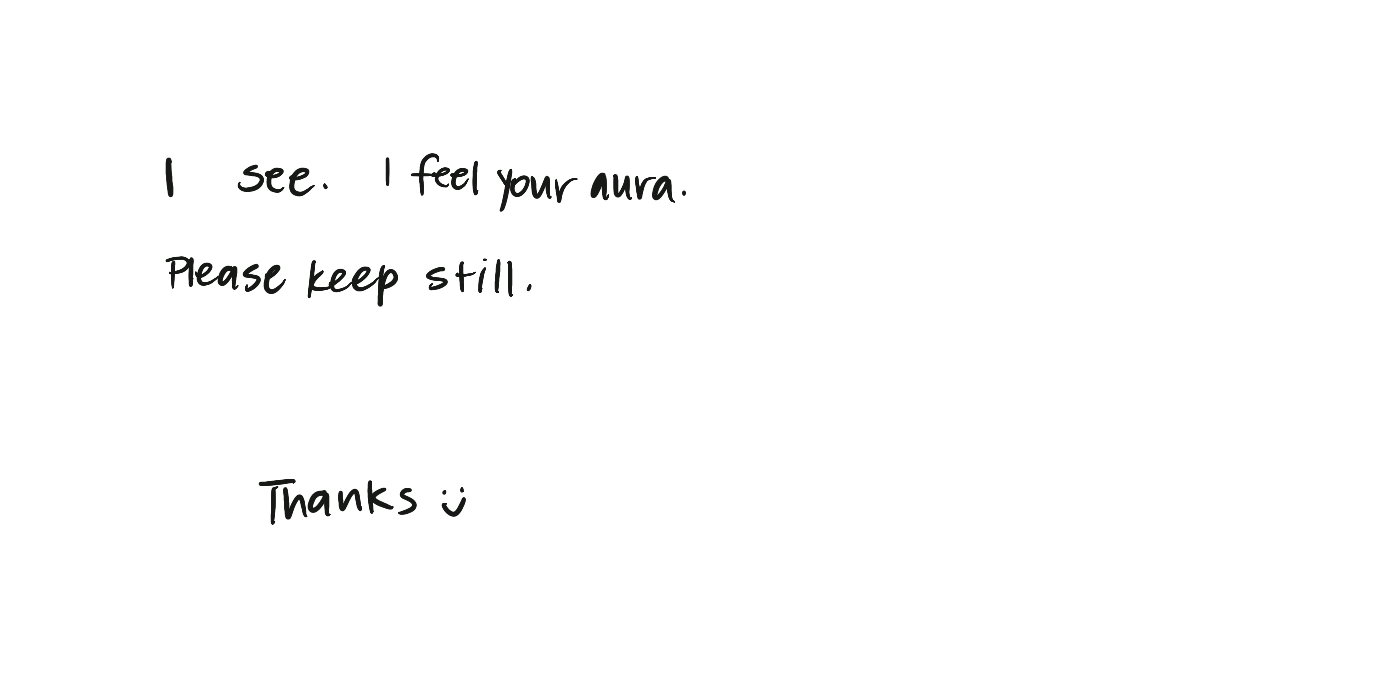 I see. I feel your aura.
Please keep still.
Thanks :)